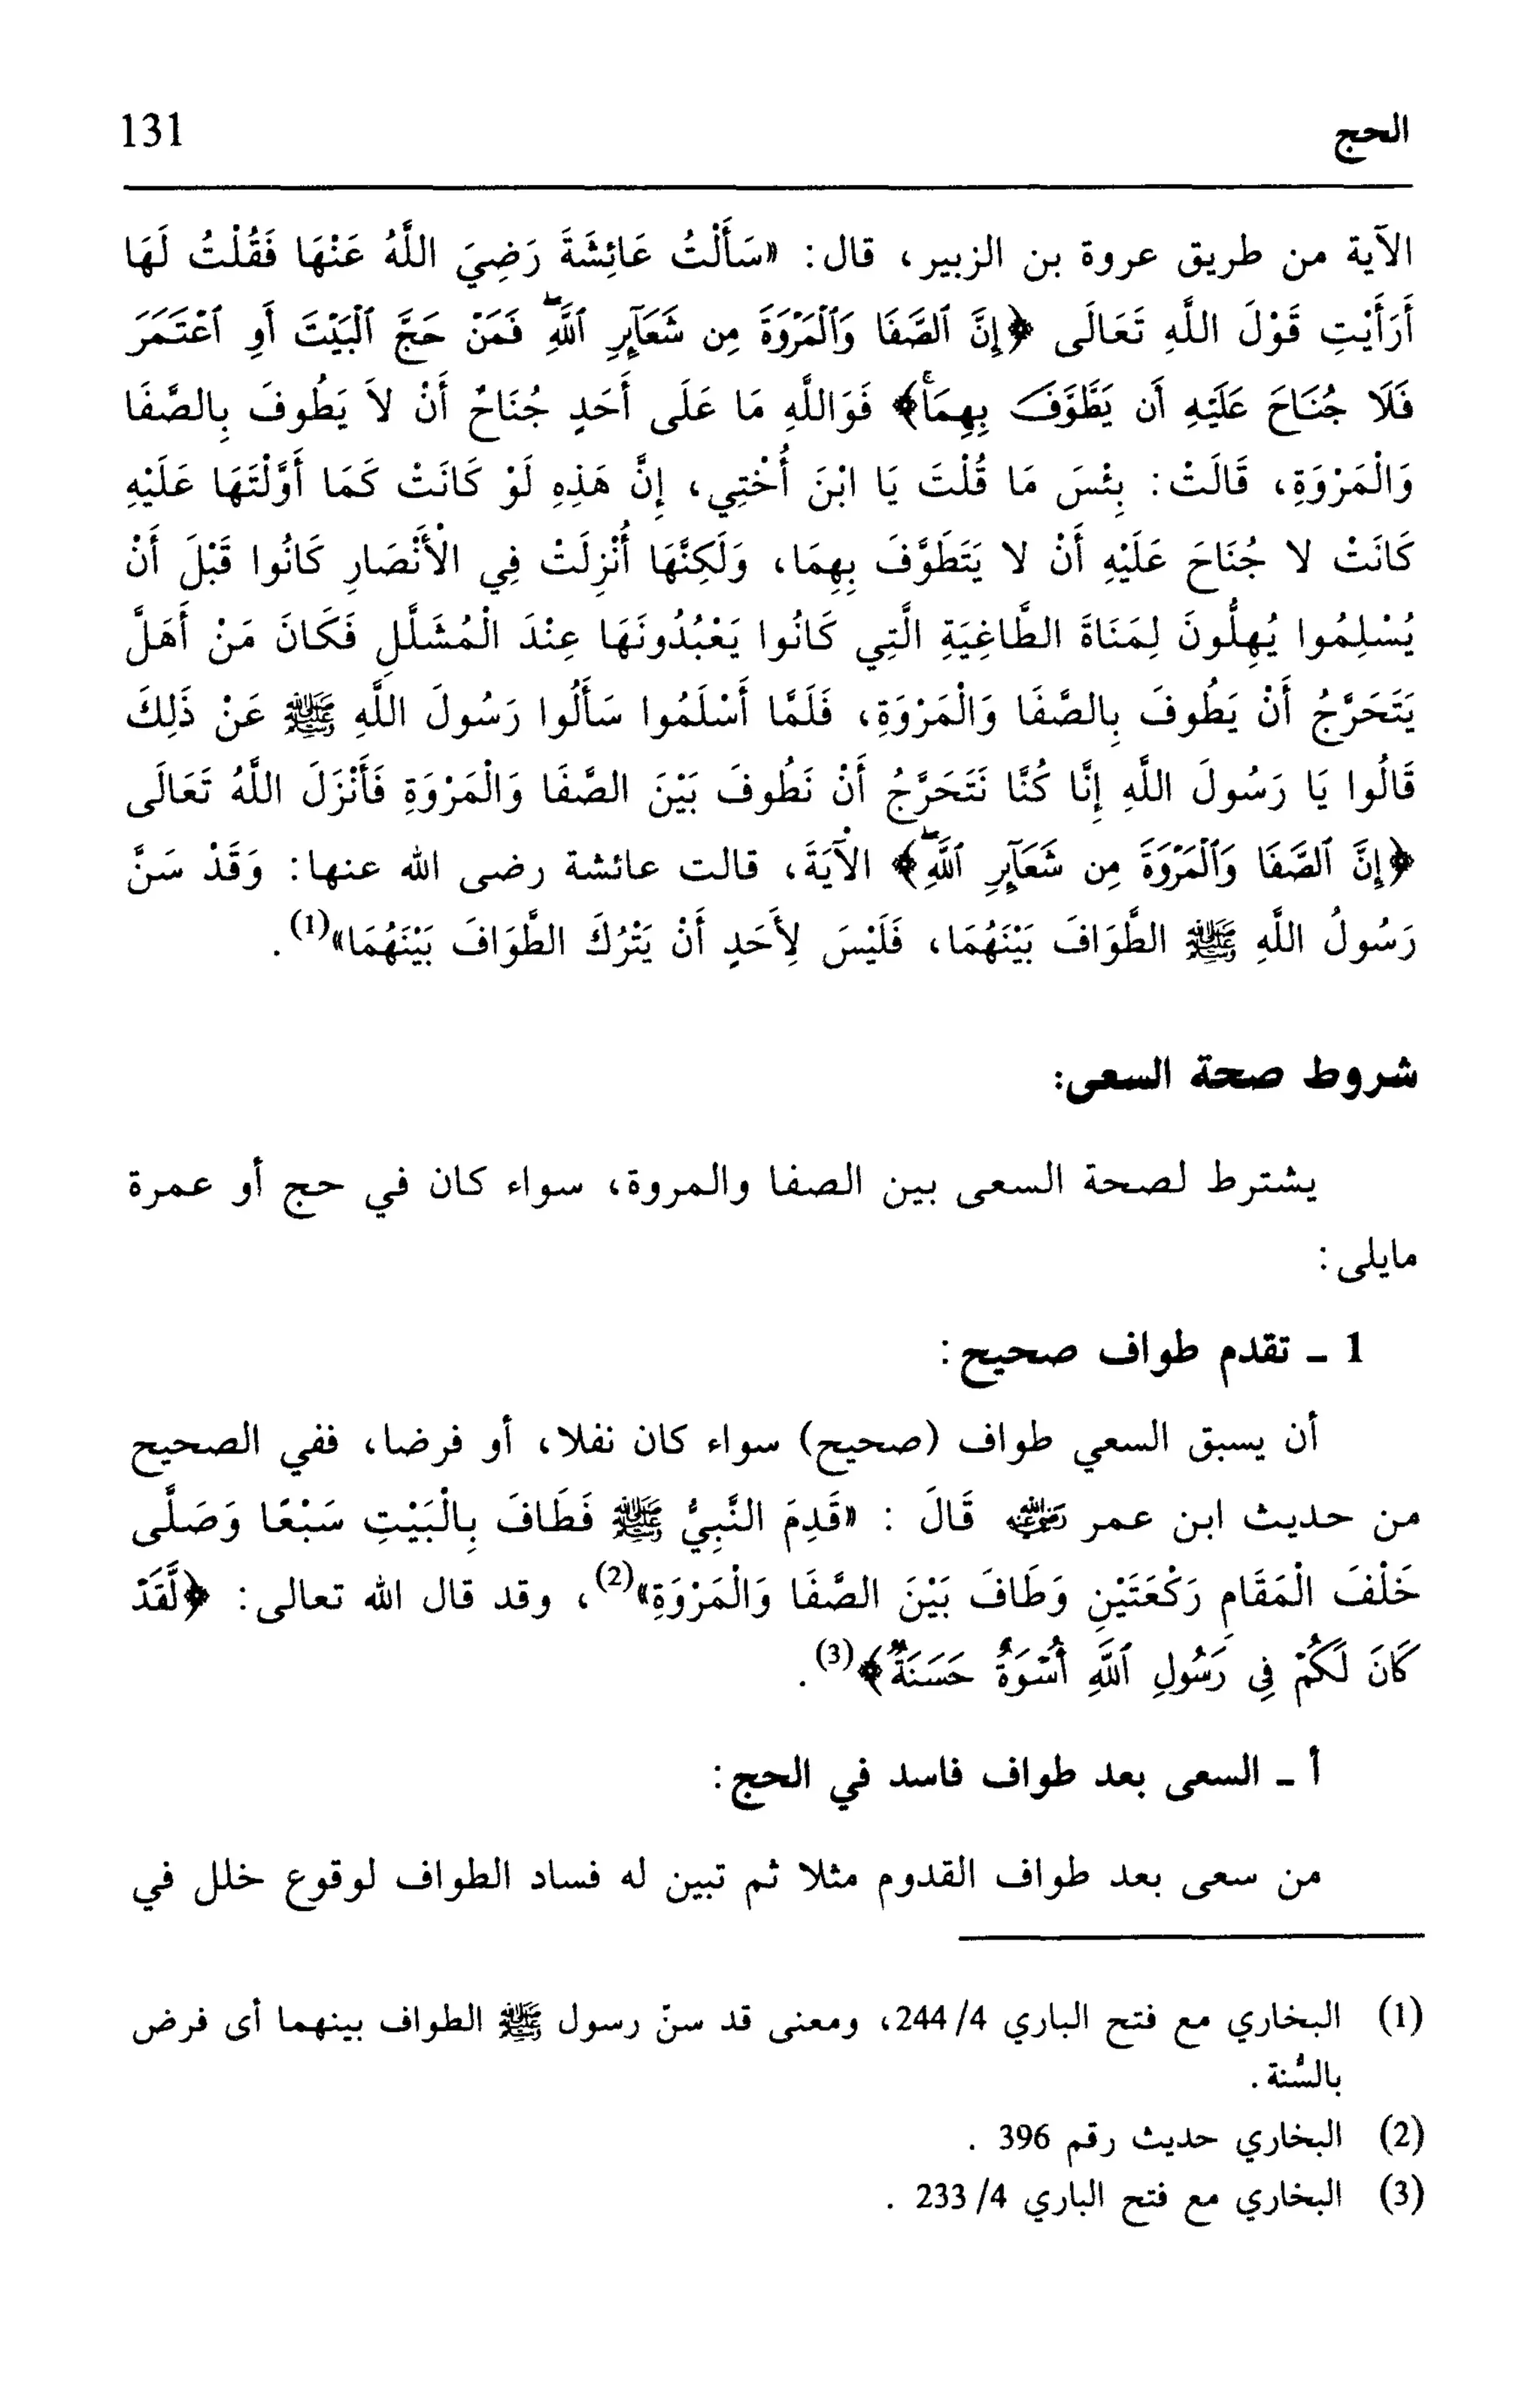 الحج 131
الآية من طريق عروة بن الزبير، قال: «سَأَلْتُ عَائِشَةَ رَضِيَ اللَّهُ عَنْهَا فَقُلْتُ لَهَا
أَرَأَيْتِ قَوْلَ اللَّهِ تَعَالَى ﴿إِنَّ ٱلصَّفَا وَٱلْمَرْوَةَ مِن شَعَآئِرِ ٱللَّهِۖ فَمَنْ حَجَّ ٱلْبَيْتَ أَوِ ٱعْتَمَرَ
فَلَا جُنَاحَ عَلَيْهِ أَن يَطَّوَّفَ بِهِمَاۚ﴾ فَوَاللَّهِ مَا عَلَى أَحَدٍ جُنَاحٌ أَنْ لاَ يَطُوفَ بِالصَّفَا
وَالْمَرْوَةِ، قَالَتْ: بِئْسَ مَا قُلْتَ يَا ابْنَ أُخْتِي، إِنَّ هَذِهِ لَوْ كَانَتْ كَمَا أَوَّلْتَهَا عَلَيْهِ
كَانَتْ لا جُنَاحَ عَلَيْهِ أَنْ لا يَتَطَوَّفَ بِهِمَا، وَلَكِنَّهَا أُنْزِلَتْ فِي الْأَنْصَارِ كَانُوا قَبْلَ أَنْ
يُسْلِمُوا يُهِلُّونَ لِمَنَاةَ الطَّاغِيَةِ الَّتِي كَانُوا يَعْبُدُونَهَا عِنْدَ الْمُشَلَّلِ فَكَانَ مَنْ أَهَلَّ
يَتَحَرَّجُ أَنْ يَطُوفَ بِالصَّفَا وَالْمَرْوَةِ، فَلَمَّا أَسْلَمُوا سَأَلُوا رَسُولَ اللَّهِ ﷺ عَنْ ذَلِكَ
قَالُوا يَا رَسُولَ اللَّهِ إِنَّا كُنَّا نَتَحَرَّجُ أَنْ نَطُوفَ بَيْنَ الصَّفَا وَالْمَرْوَةِ فَأَنْزَلَ اللَّهُ تَعَالَى
﴿إِنَّ ٱلصَّفَا وَٱلْمَرْوَةَ مِن شَعَآئِرِ ٱللَّهِۖ﴾ الآيَةَ، قالت عائشة رضى الله عنها: وَقَدْ سَنَّ
رَسُولُ اللَّهِ ﷺ الطَّوَافَ بَيْنَهُمَا، فَلَيْسَ لِأَحَدٍ أَنْ يَتْرُكَ الطَّوَافَ بَيْنَهُمَا»(1).
شروط صحة السعى:
يشترط لصحة السعى بين الصفا والمروة، سواء كان في حج أو عمرة
مايلى:
1 - تقدم طواف صحيح:
أن يسبق السعي طواف (صحيح) سواء كان نفلا، أو فرضا، ففي الصحيح
من حديث ابن عمر رضي الله عنه قَالَ : «قَدِمَ النَّبِيُّ ﷺ فَطَافَ بِالْبَيْتِ سَبْعًا وَصَلَّى
خَلْفَ الْمَقَامِ رَكْعَتَيْنِ وَطَافَ بَيْنَ الصَّفَا وَالْمَرْوَةِ»(2)، وقد قال الله تعالى: ﴿لَّقَدْ
كَانَ لَكُمْ فِى رَسُولِ ٱللَّهِ أُسْوَةٌ حَسَنَةٌ﴾(3).
أ - السعى بعد طواف فاسد في الحج:
من سعى بعد طواف القدوم مثلا ثم تبين له فساد الطواف لوقوع خلل في
(1) البخاري مع فتح الباري 4/ 244، ومعنى قد سنّ رسول ﷺ الطواف بينهما أى فرض
بالسُّنة.
(2) البخاري حديث رقم 396 .
(3) البخاري مع فتح الباري 4/ 233 .